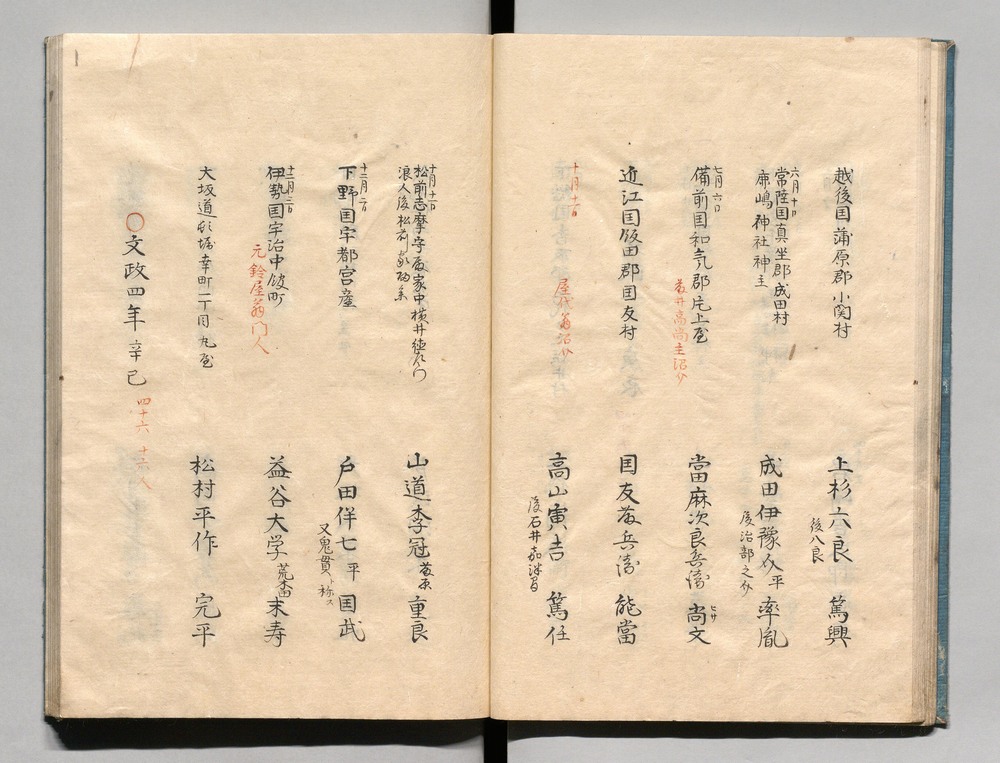 越後国蒲原郡小関村
上杉六良 篤興
後八良
六月十日
常陸国真坐郡成田村
鹿嶋神社神主
成田伊豫 平 率胤
後治部之
七月六日
備前国和気郡片上
高尚主
當麻次良兵衛 尚文
近江国坂田郡国友村
国友藤兵衛 能當
十月十日
屋代翁
高山寅吉 篤任
後石井嘉
十月十一日
松前志摩守殿家中横井
浪人後松前
山道李冠 重良
十二月
下野国宇都宮産
戸田伴七 平 国武
又鬼貫
十二月
伊勢国宇治中
元鈴屋翁門人
益谷大学 荒木田 末寿
大坂道 堀幸町一丁目 丸屋
松村平作 完平
〇文政四年 辛巳
四十六 十六人